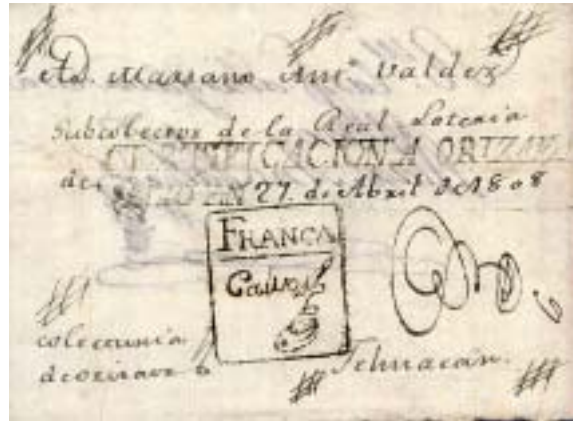 A D. Mariano Ant.º Valdez
Subcolector de la Real Loteria
CERTIFICACION A ORIZAVA
de 27 de Abril de 1808
FRANCA
Calvo
colecturia
de orizava
Tehuacán.